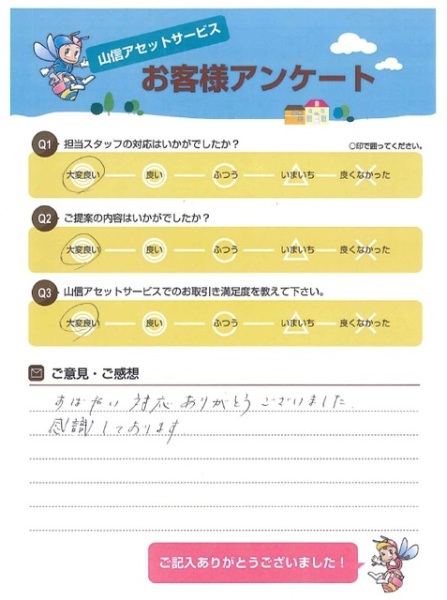 山信アセットサービス
お客様アンケート
Q1 担当スタッフの対応はいかがでしたか？ ○印で囲ってください。
大変良い 良い ふつう いまいち 良くなかった
Q2 ご提案の内容はいかがでしたか？
大変良い 良い ふつう いまいち 良くなかった
Q3 山信アセットサービスでのお取引き満足度を教えて下さい。
大変良い 良い ふつう いまいち 良くなかった
ご意見・ご感想
すばやい対応ありがとうございました。
感識しております
ご記入ありがとうございました！